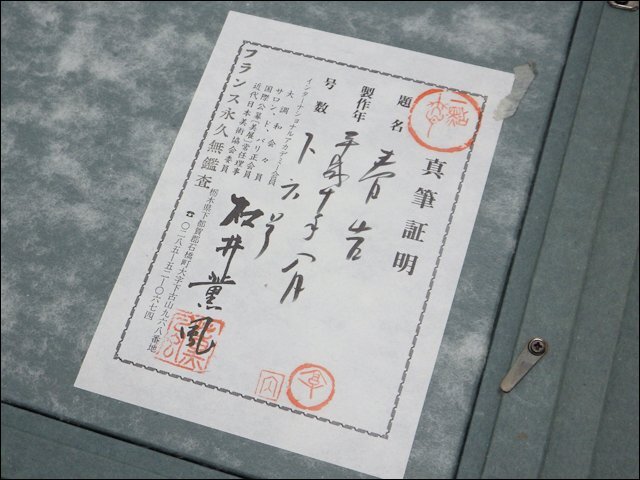 真筆証明
題名 春岩
製作年 平成十年八月
号数 下六号
インターナショナルアカデミー会員
大調和会々員
サロン、ド、パリ正会員
国際公募(美展)常任理事
近代日本美術協会委員
フランス永久無鑑査
松井薫風
栃木県下都賀郡石橋町大字下古山九六八番地
☎〇二八五-五二-〇六七四